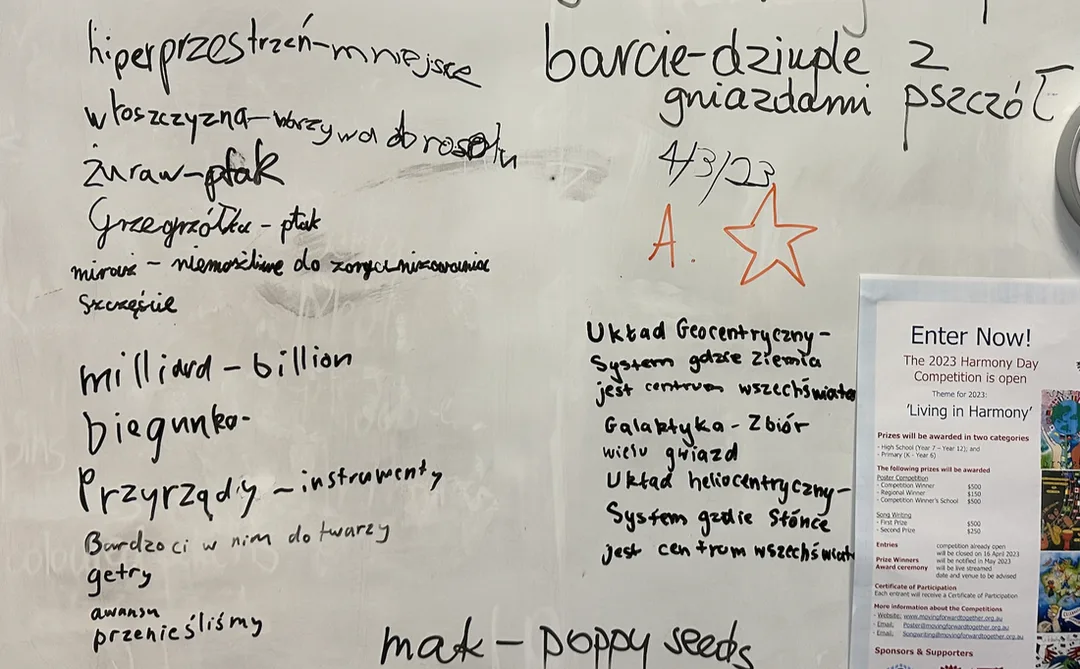 hiperprzestrzeń-mniejsce
włoszczyzna-warzywa do rosołu
żuraw-ptak
Grzegrzółka - ptak
- niemożliwe do
szczęście
milliard - billion
biegunko-
Przyrządy - instrumenty
Bardzo ci w nim do twarzy
getry
awansu
przenieśliśmy
barcie-dziuple z
gniazdami pszczół
4/3/23
A.
Układ Geocentryczny -
System gdzie Ziemia
jest centrum wszechświata
Galaktyka - Zbiór
wielu gwiazd
Układ heliocentryczny -
System gzdie Słońce
jest centrum wszechświata
mak - poppy seeds
Enter Now!
The 2023 Harmony Day
Competition is open
Theme for 2023:
'Living in Harmony'
Prizes will be awarded in two categories
- High School (Year 7 - Year 12); and
- Primary (K - Year 6)
The following prizes will be awarded
Poster Competition
- Competition Winner $500
- Regional Winner $150
- Competition Winner's School $500
Song Writing
- First Prize $500
- Second Prize $250
Entries competition already open
will be closed on 16 April 2023
Prize Winners will be notified in May 2023
Award ceremony will be live streamed
date and venue to be advised
Certificate of Participation
Each entrant will receive a Certificate of Participation
More information about the Competitions
- Website: www.movingforwardtogether.org.au
- Email: Poster@movingforwardtogether.org.au
- Email: Songwriting@movingforwardtogether.org.au
Sponsors & Supporters